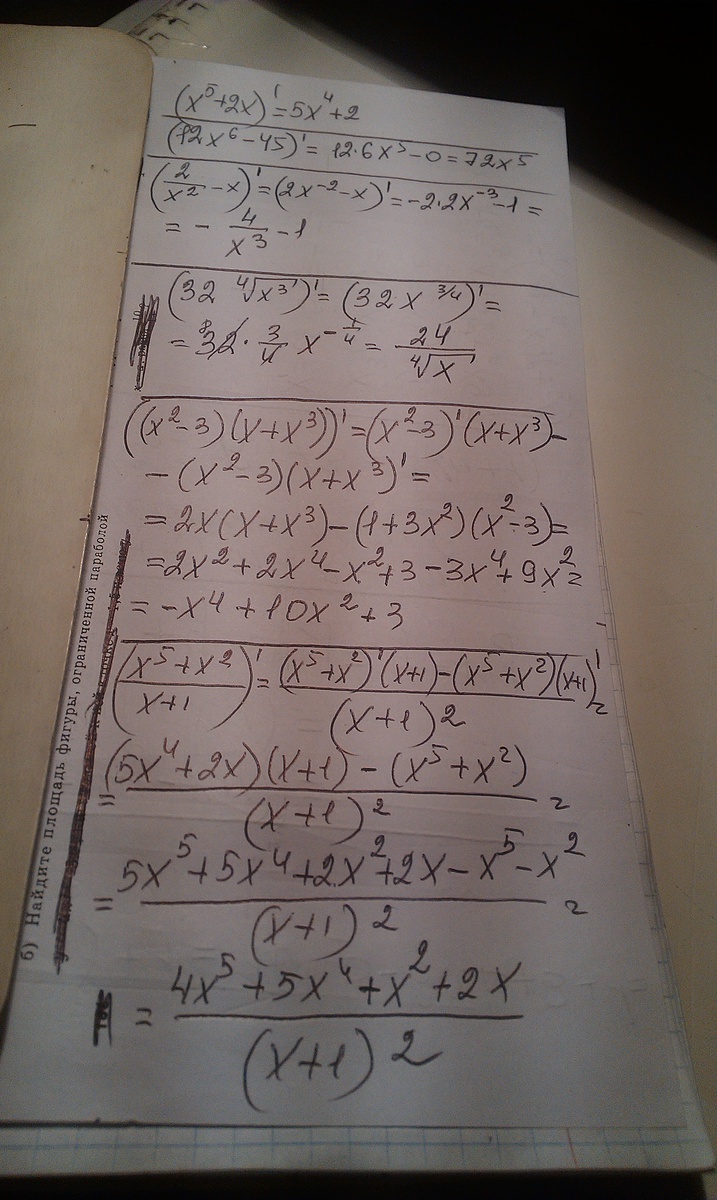 (x⁵+2x)'=5x⁴+2
(12x⁶-45)'=12·6x⁵-0=72x⁵
(2/x²-x)'=(2x⁻²-x)'=-2·2x⁻³-1=
=-4/x³-1
(32 ⁴√x³)'=(32x^(3/4))'=
=32·3/4 x^(-1/4)=24/⁴√x
((x²-3)(x+x³))'=(x²-3)'(x+x³)-
-(x²-3)(x+x³)'=
=2x(x+x³)-(1+3x²)(x²-3)=
=2x²+2x⁴-x²+3-3x⁴+9x²=
=-x⁴+10x²+3
((x⁵+x²)/(x+1))'=((x⁵+x²)'(x+1)-(x⁵+x²)(x+1)')/(x+1)²=
=((5x⁴+2x)(x+1)-(x⁵+x²))/(x+1)²=
=(5x⁵+5x⁴+2x²+2x-x⁵-x²)/(x+1)²=
=(4x⁵+5x⁴+x²+2x)/(x+1)²
б) Найдите площадь фигуры, ограниченной параболой